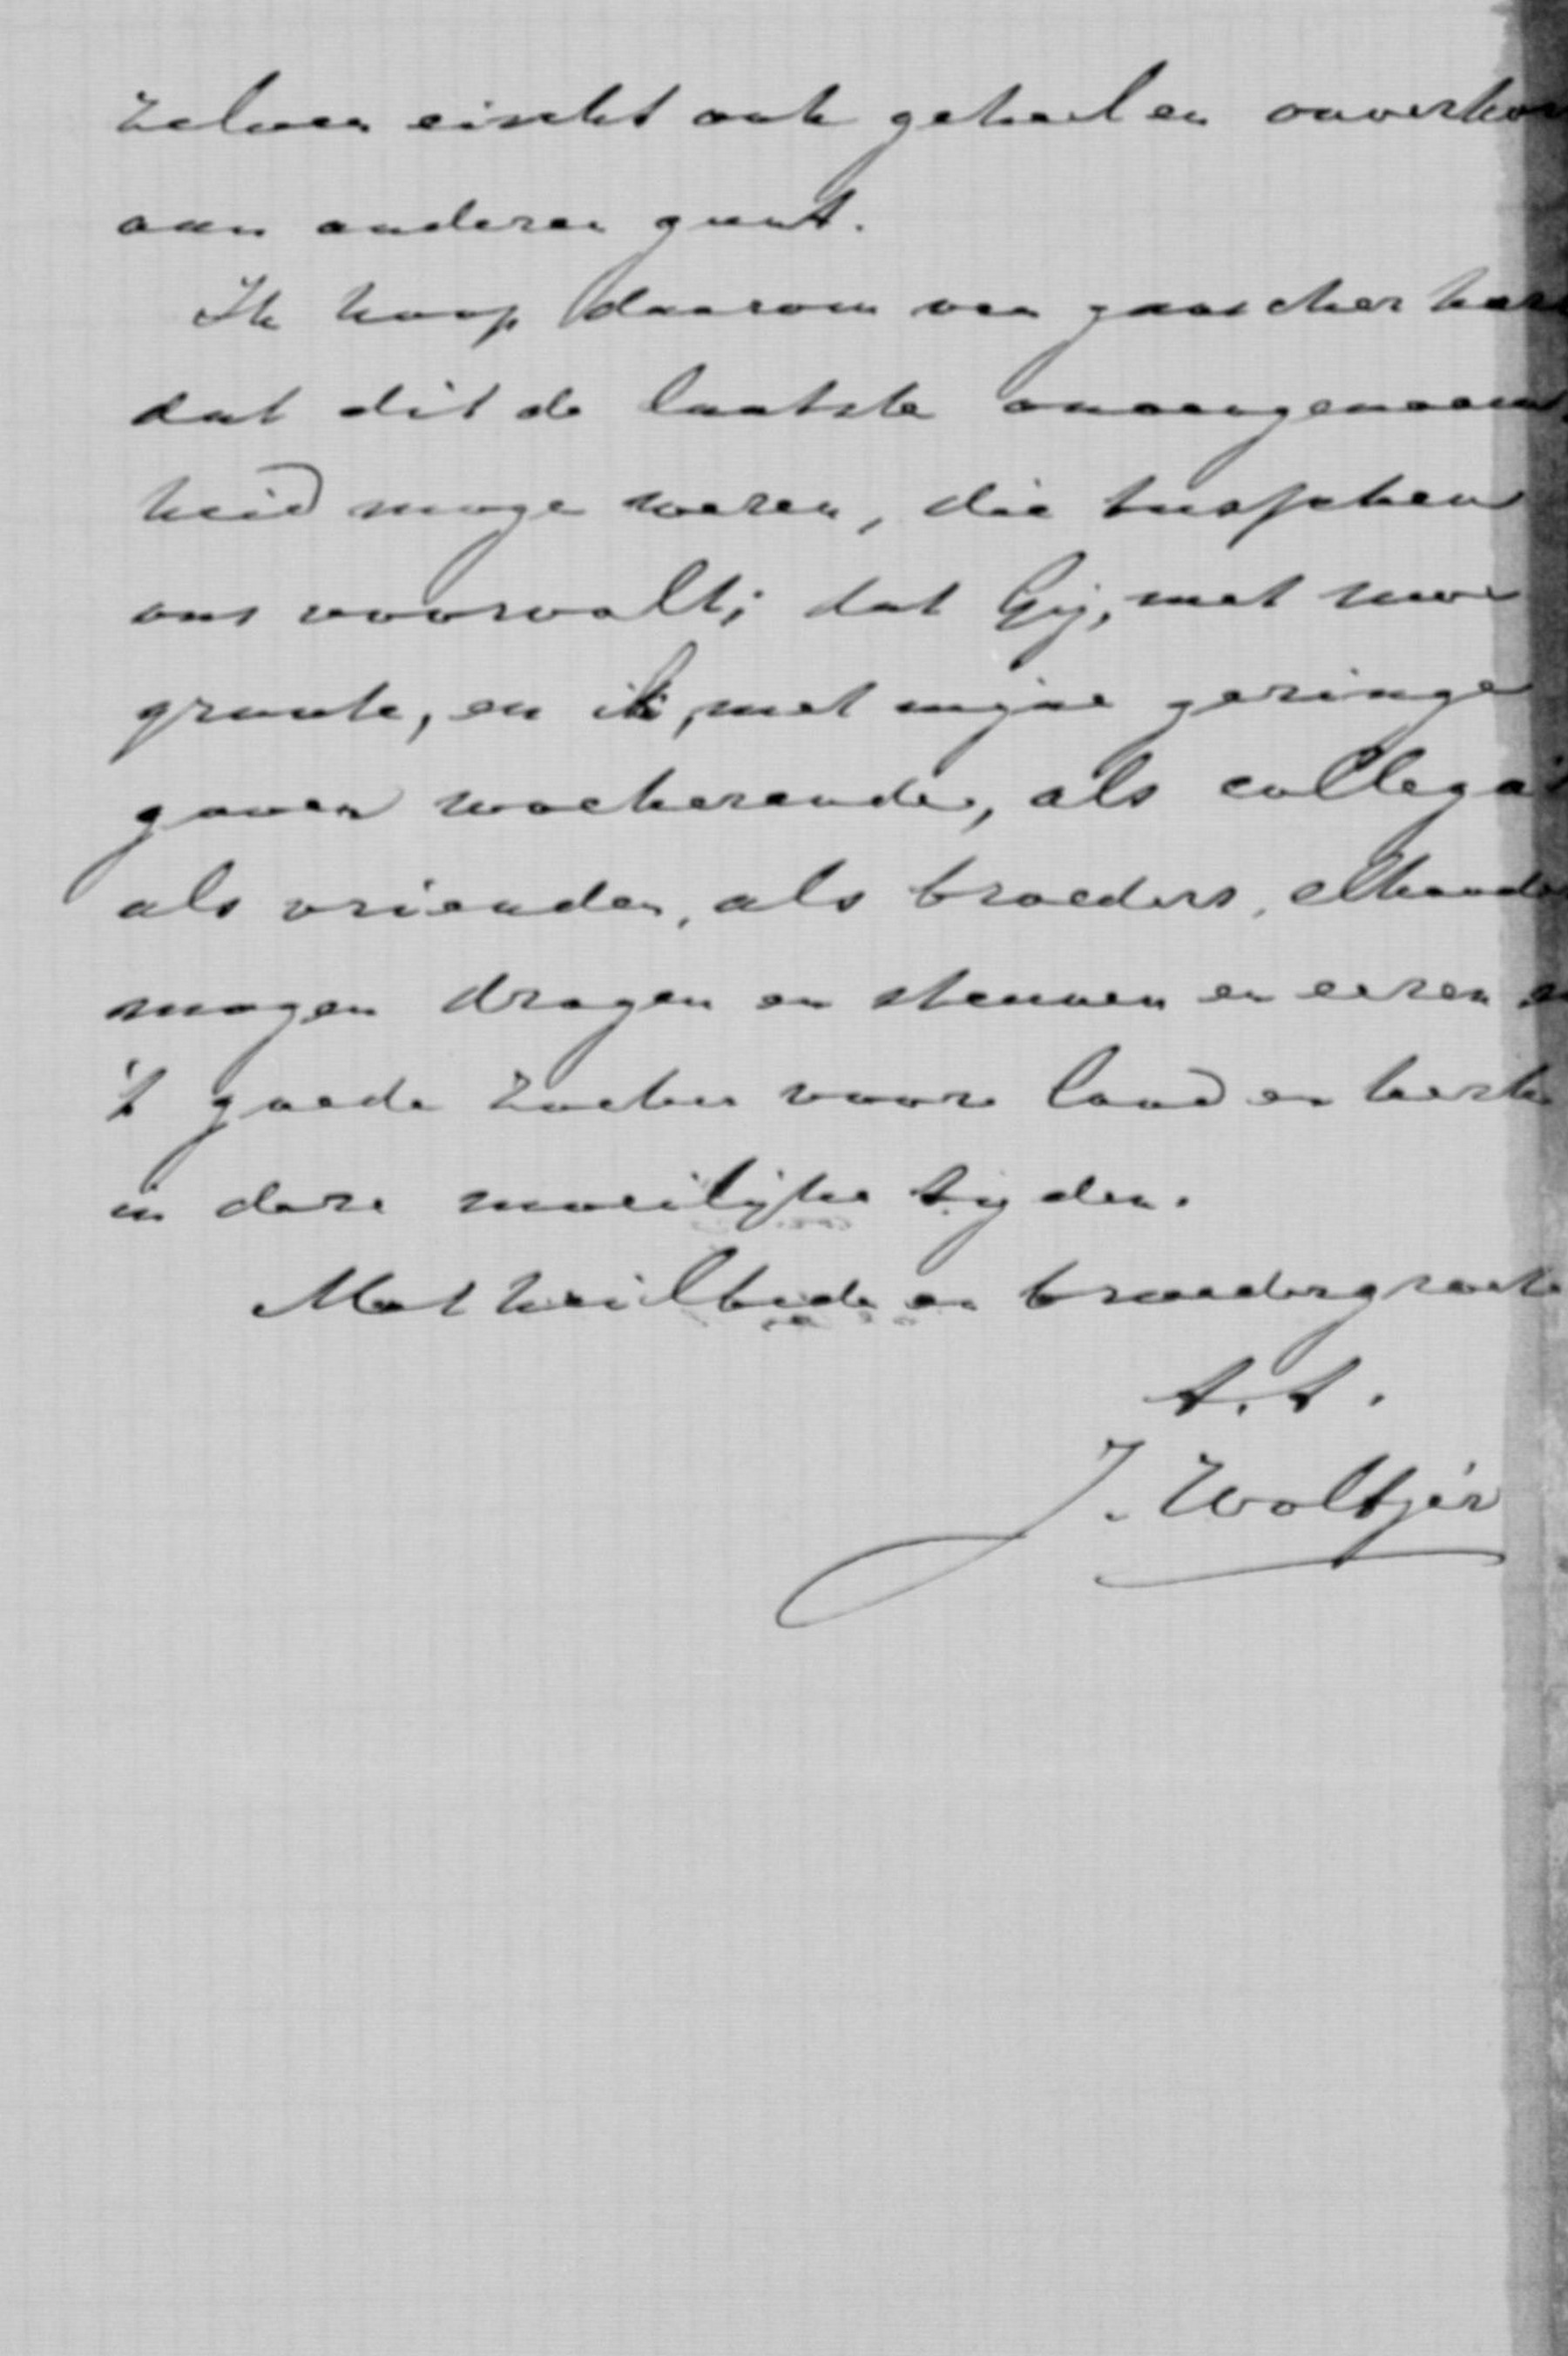 zelven eischt ook geheel en onverkor
aan anderen gunt.
Ik hoop daarom van ganscher har
dat dit de laatste onaangenaam
heid moge wezen, die tusschen
ons voorvalt; dat Gij, met uwe
groote, en ik, met mijne geringe
gaven woekerende, als collega's
als vrienden, als broeders, elkande
mogen dragen en steunen en eeren e
't goede zoeken voor land en kerk
in deze moeilijke tijden.
Met heilbede en broedergroete
t.t.
J. Woltjer